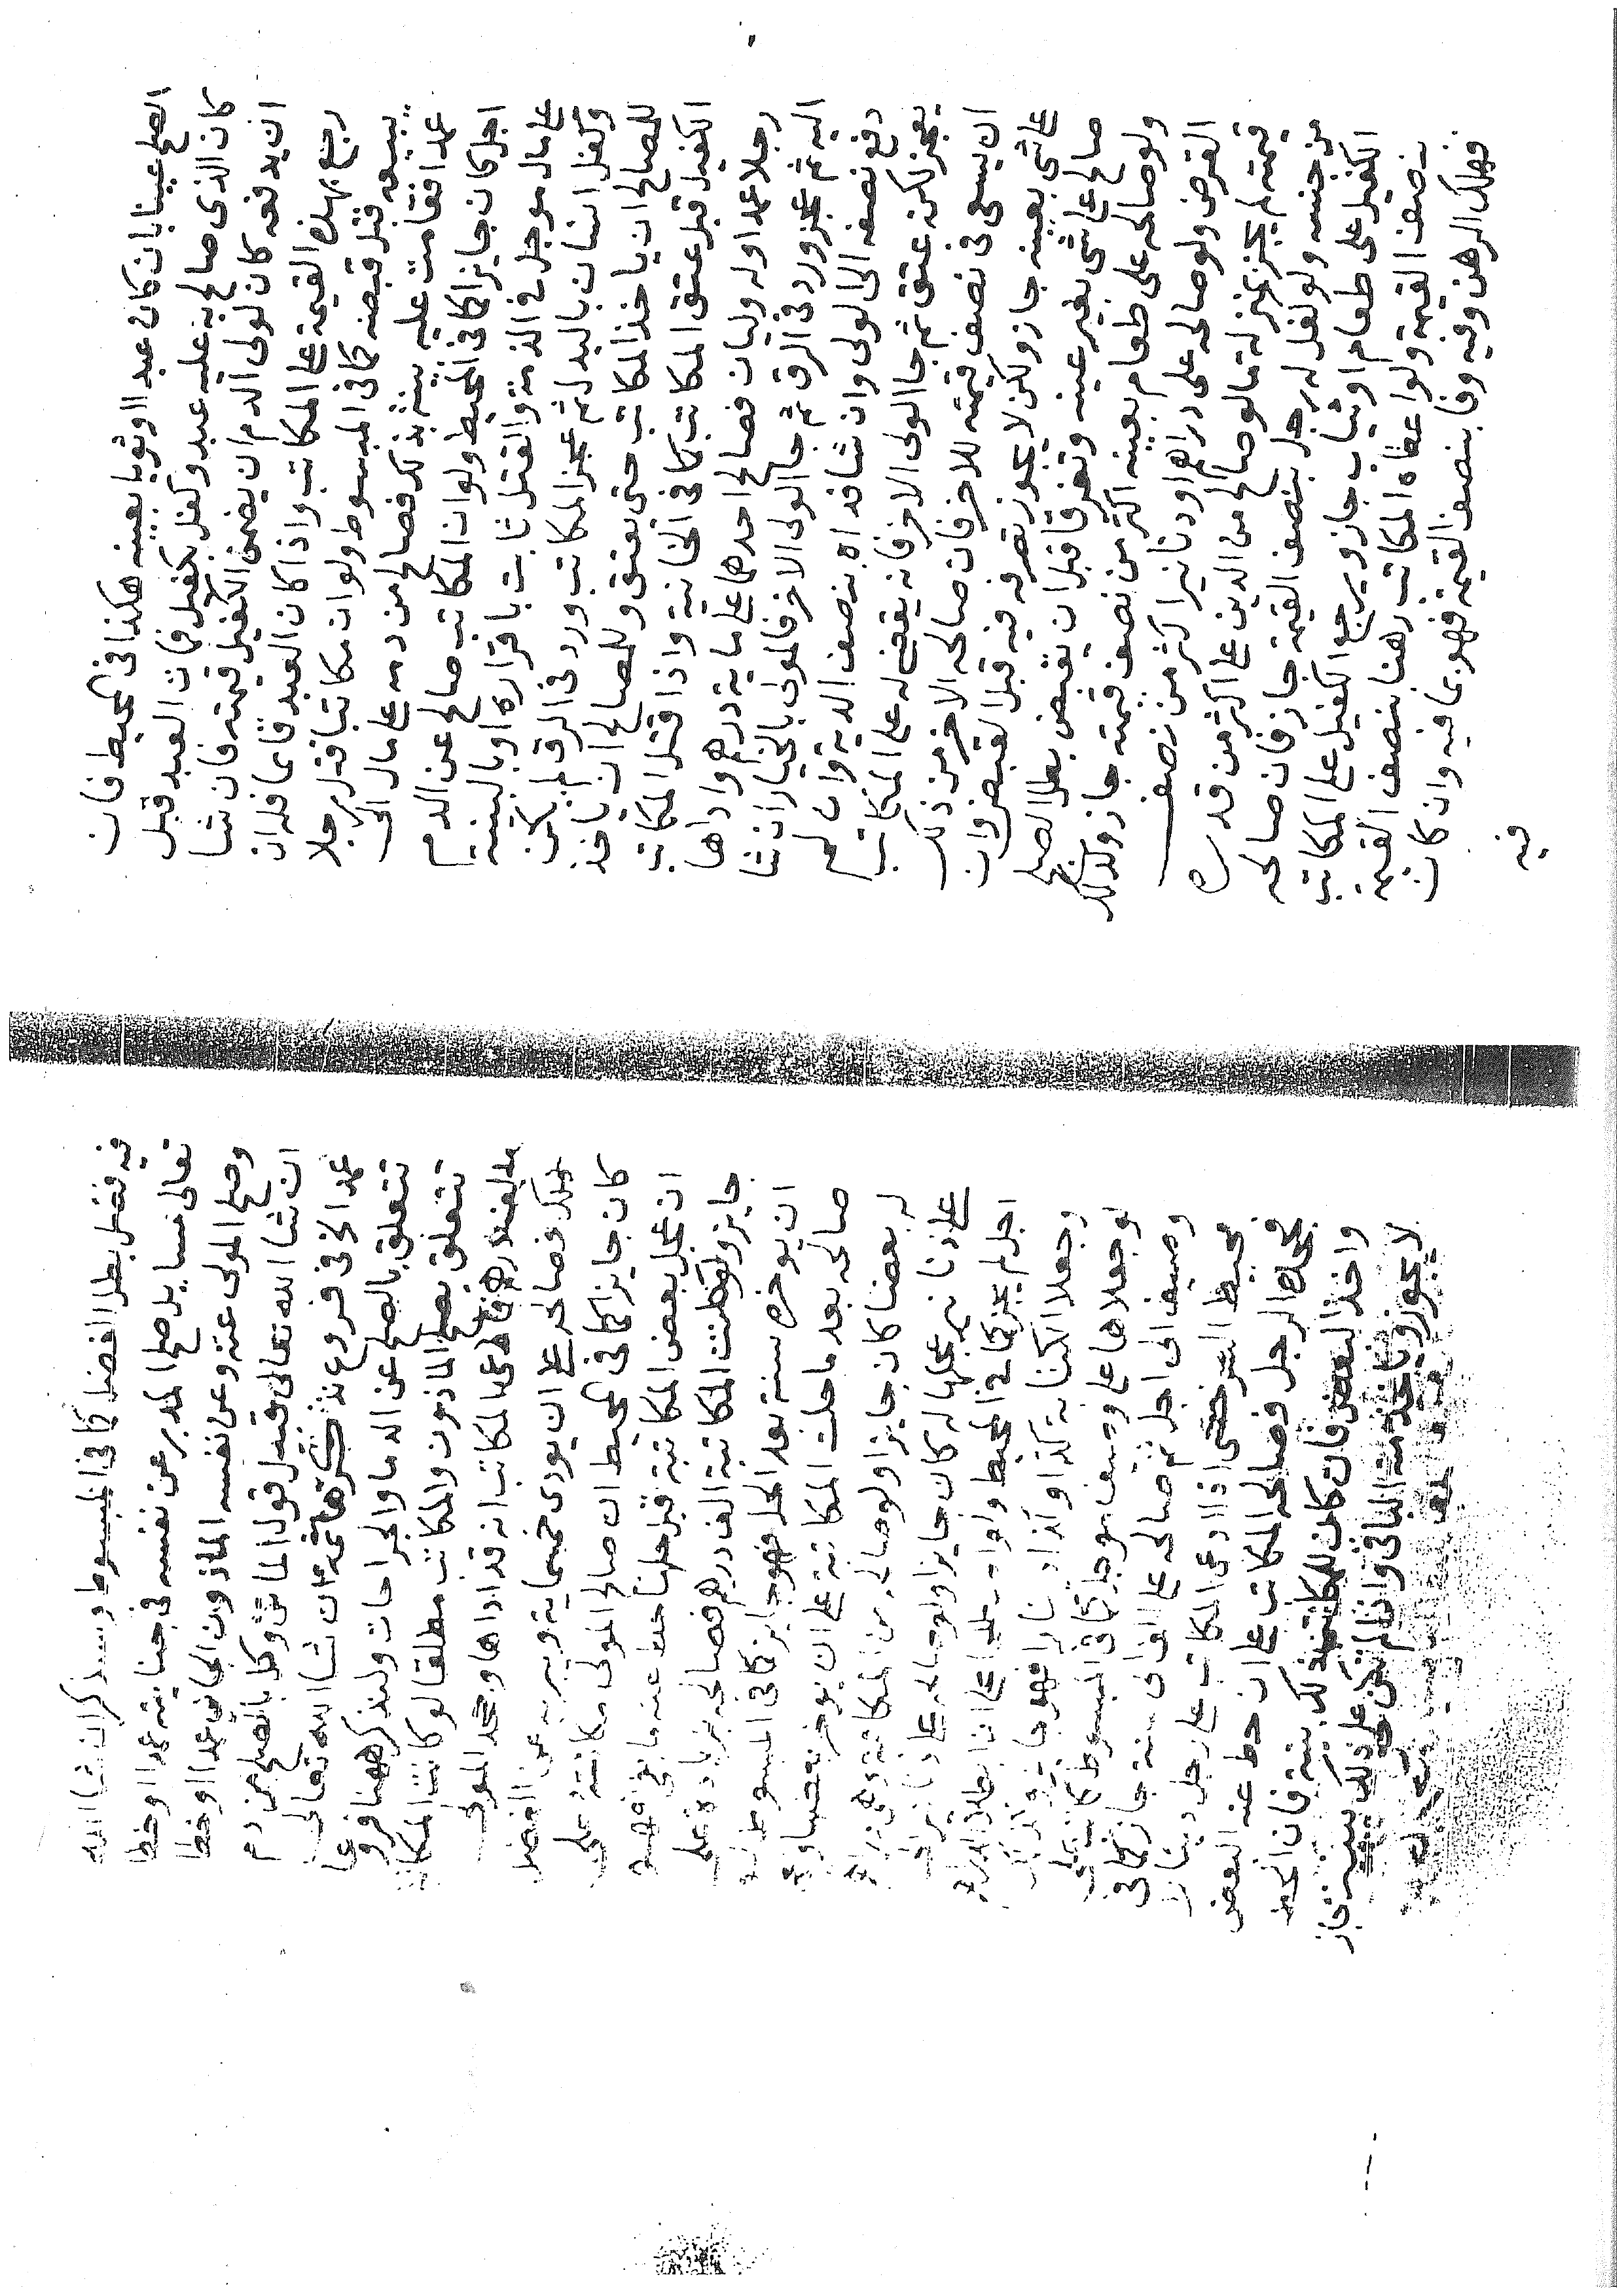 الصلح عينا بان كان عبدا او ثوبا بعينه هكذا في المحيط فان
كان الذى صالح به عليه عبد وكفل به كفيل فمات العبد قبل
ان يدفعه كان لولى الدم ان يضمن الكفيل قيمته فان شا
رجع بهذه القيمة على المكاتب واذا كان العبد قايما فله ان
يبيعه قبل قبضه كما في المبسوط ولو ان مكاتبا قتل رجلا
عمدا فقامت عليه بينة بذلك فصالح من دمه على مال الى
اجل كان جايزا كما في المحيط ولو ان المكاتب صالح عن الدم
على مال موجل في الذمة والقتل ثابت باقراره او بالبينة
وكفل انسان بالبدل ثم عجز المكاتب ورد في الرق لم يكن
للمصالح ان ياخذ المكاتب حتى يعتق وللمصالح ان ياخذ
الكفيل قبل عتق المكاتب كما في الخانية واذا قتل المكاتب
رجلا عمدا وله وليان فصالح احدهما على ماية درهم واداها
اليه ثم عجز ورد في الرق ثم جا الولى الاخر فالمولى بالخيار ان شا
دفع نصفه الى الولى وان شا فداه بنصف الدية وان لم
يعجز لكن عتق ثم جا الولى الاخر فانه يقضى له على المكاتب
ان يسعى في نصف قيمته للاخر فان صالحه الاخر من ذلك
على شى بعينه جاز ولكن لا يجوز تصرفه فيه قبل القبض وان
صالح على شى بغير عينه وتفرقا قبل ان يقبض بطل الصلح
ولو صالحه على طعام بعينه اكثر من نصف قيمته جاز وكذلك
القرض ولو صالحه على دراهم او دنانير اكثر من نصف
قيمته لم يجز بمنزلة ما لو صالح من الدين على اكثر من قدره
من جنسه ولو كفل له رجل بنصف القيمة جاز فان صالحه
الكفيل على طعام او ثياب جاز ويرجع الكفيل على المكاتب
بنصف القيمة ولو اعطاه المكاتب رهنا بنصف القيمة
فهلك الرهن وفيه وفا بنصف القيمة فهو بما فيه وان كان
فيه
فيه فضل بطل الفضل كما في المبسوط وسنذكر ان شا الله
تعالى مسايل صلح المدبر عن نفسه في جنايته عمدا وخطا
وصلح المولى عنه وعن نفسه الماذون الجانى عمدا او خطا
ان شا الله تعالى قبيل قول الماتن وكل بالصلح عن دم
عمدا الخ في فروع ثم ان شا الله تعالى
تتعلق بالصلح عن الدما والجراحات ولنذكر ههنا فروعا
تتعلق بصلح الماذون والمكاتب مطلقا لو كانت المكاتبة
الف درهم فادعى المكاتب انه قد اداها وجحد المولى
ذلك فصالحه على ان يودى خمسماية ويبريه عن الفضل
كان جايزا كما في المحيط ان صالح المولى مكاتبه على
ان عجل بعض المكاتبة قبل حلها حط عنه ما بقى فهو
جايز ولو كانت المكاتبة الف درهم فصالحه بزيادة على
ان يوخره سنة بعد المحل فهو جايز كما في المبسوط
صالحه بعد ما حلت المكاتبة على ان يوخر بعضها
له بعضا كان جايزا ولو صالحه من المكاتبة وهى دراهم
على دنانير عجلها له كان جايزا ولو صالحه على دنانير الى
اجل لم يجز كما في المحيط ولو اصطلحا على ان ابطلا الدراهم
وجعلا الكتابة كذا وكذا دينارا فهو جايز
لو جعلاها على وصيف موجل كما في المبسوط كاتبه على
وصيف الى اجل ثم صالحه على الف الى سنة جاز كما في
محيط السرخسى اذا ادعى المكاتب على رجل دينا
فجحده الرجل فصالحه المكاتب على ان حط عنه البعض
واخذ البعض فان كان للمكاتب بذلك بينة فان الحط
لا يجوز وياخذ منه الباقى وان لم يكن له على ذلك بينة جاز